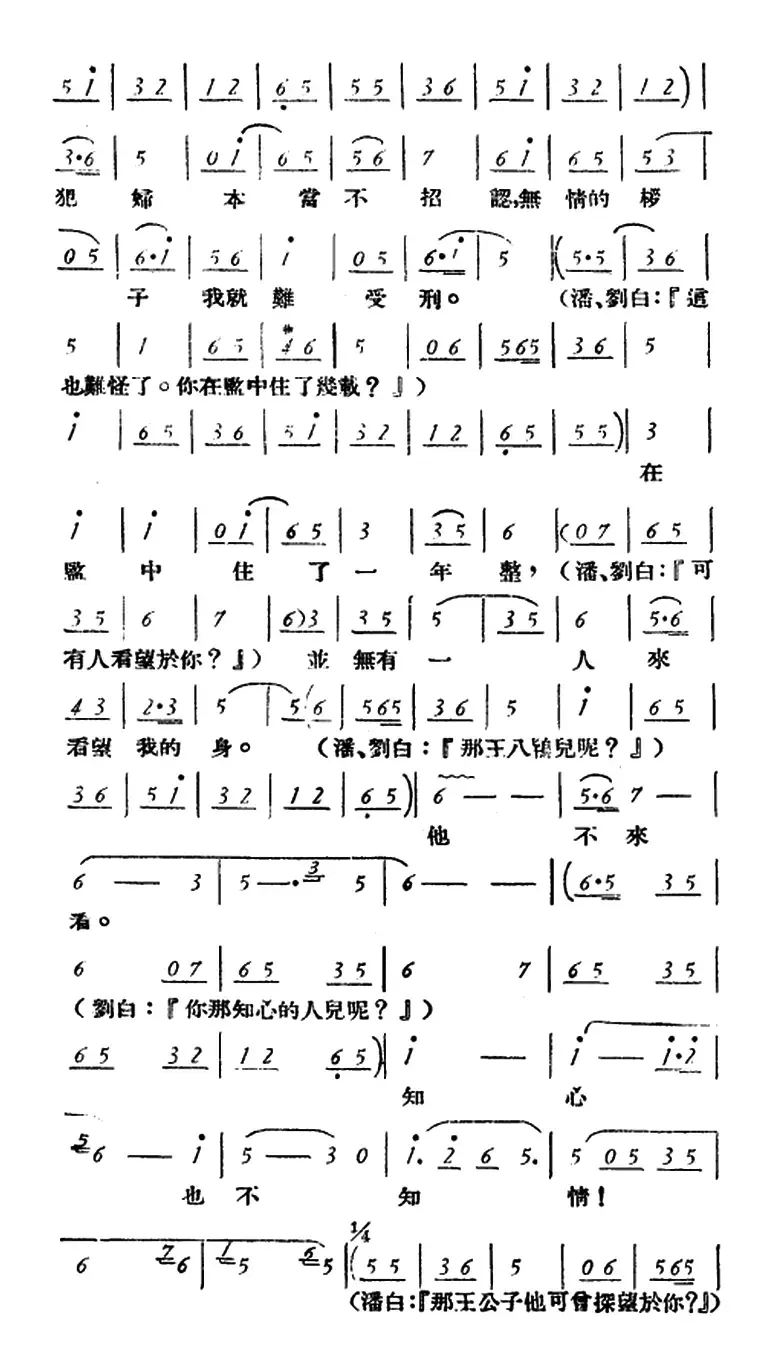 5 i | 3 2 | 1 2 | 6 5 | 5 5 | 3 6 | 5 i | 3 2 | 1 2 ) |
3·6 | 5 | 0 i | 6 5 | 5 6 | 7 | 6 i | 6 5 | 5 3 |
犯 婦 本 當 不 招 認,無 情的 桚
0 5 | 6·i | 5 6 | i | 0 5 | 6·i | 5 ‖( 5·5 | 3 6 |
子 我就 難 受 刑。 (潘、劉白:『這
5 | 1 | 6 5 | #4 6 | 5 | 0 6 | 565 | 3 6 | 5
也難怪了。你在監中住了幾載?』)
i | 6 5 | 3 6 | 5 i | 3 2 | 1 2 | 6 5 | 5 5 )‖ 3 |
在
i | i | 0 i | 6 5 | 3 | 3 5 | 6 ‖( 0 7 | 6 5 |
監 中 住 了 一 年 整, (潘、劉白:『可
3 5 | 6 | 7 | 6)3 | 3 5 | 5 | 3 5 | 6 | 5·6 |
有人看望於你?』) 並 無有 一 人 來
4 3 | 2·3 | 5 | 5(6 | 565 | 3 6 | 5 | i | 6 5 |
看望 我的 身。 (潘、劉白:『那王八鴇兒呢?』)
3 6 | 5 i | 3 2 | 1 2 | 6 5 )‖ 6 — — | 5·6 7 — |
他 不 來
6 — 3 | 5 —· 3 5 | 6 — — ‖( 6·5 3 5 |
看。
6 0 7 | 6 5 3 5 | 6 7 | 6 5 3 5 |
(劉白:『你那知心的人兒呢?』)
6 5 3 2 | 1 2 6 5 )‖ i — | i — i·2 |
知 心
5 6 — i | 5 — 3 0 | i. 2 6 5. | 5 0 5 3 5 |
也 不 知 情!
1/4
6 7 6 | 1 5 6 5 ‖( 5 5 | 3 6 | 5 | 0 6 | 565 |
(潘白:『那王公子他可曾探望於你?』)